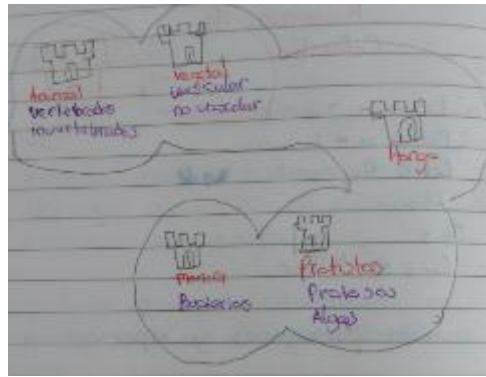 Animal
vertebrados
invertebrados
vegetal
vascular
no vascular
Hongo
Monera
Bacterias
Protistas
Protozoos
Algas